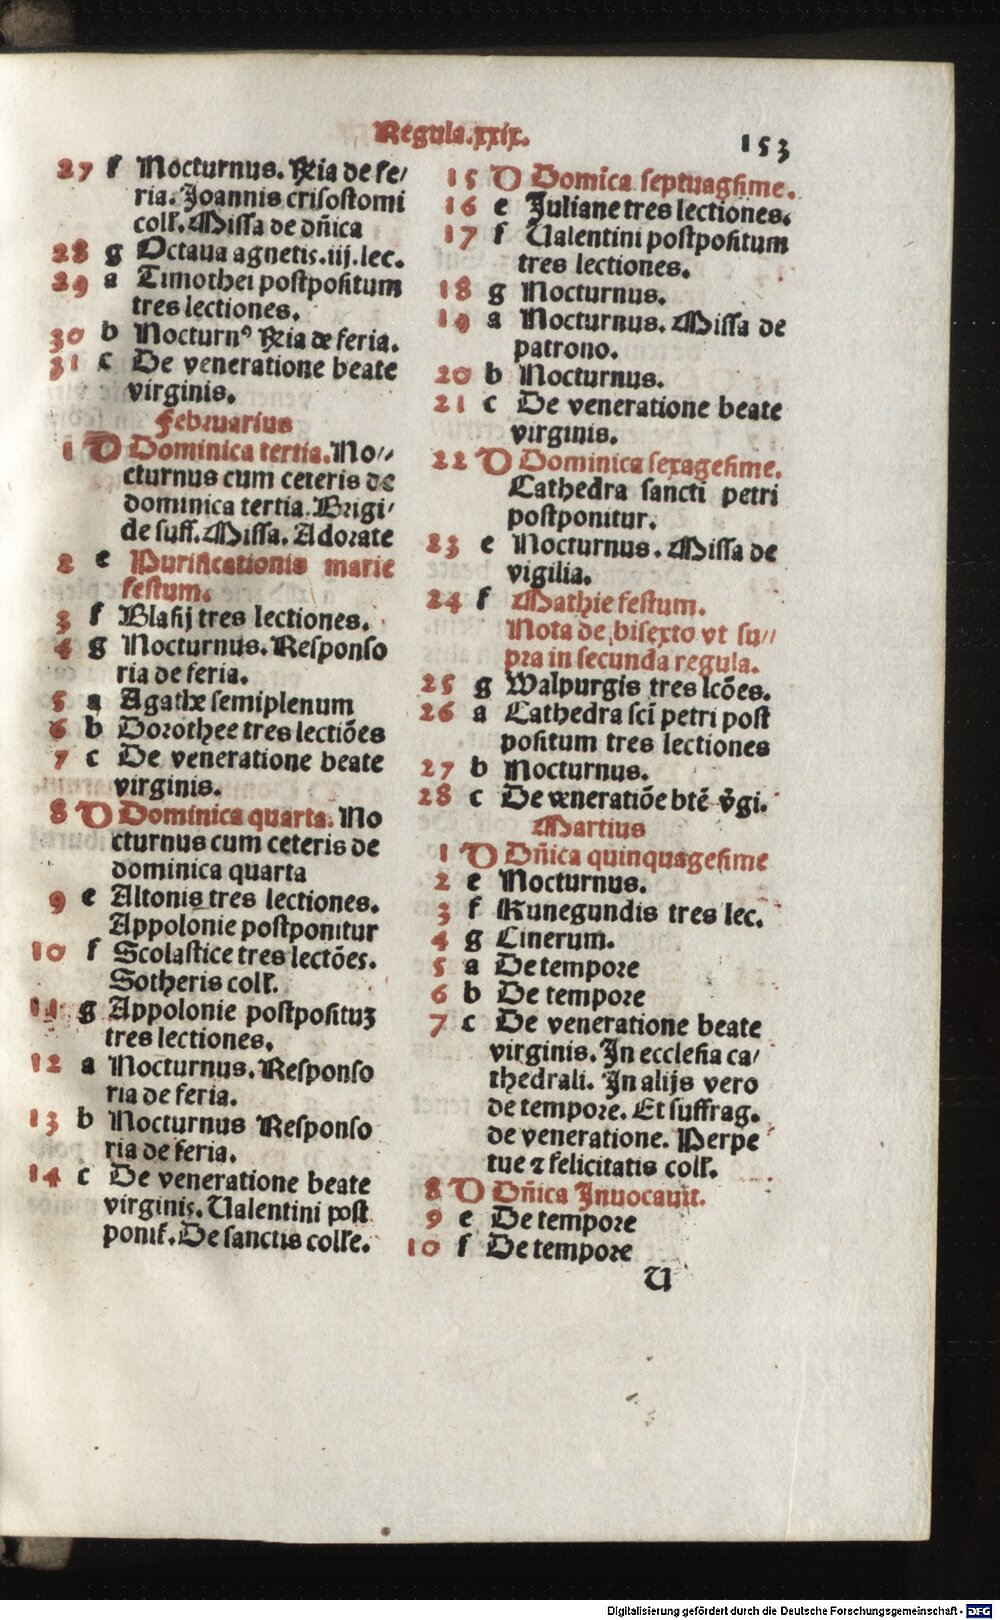 Regula.xxix.
153
27 f Nocturnus. Rxia de fe/
ria. Joannis crisostomi
coll̕. Missa de dn̄ica
28 g Octaua agnetis.iij.lec.
29 a Timothei postpositum
tres lectiones.
30 b Nocturnꝰ Rxia de feria.
31 c De veneratione beate
virginis.
Februarius
1 D Dominica tertia. No//
cturnus cum ceteris de
dominica tertia. Brigi/
de suff. Missa. Adorate
2 e Purificationis marie
festum.
3 f Blasij tres lectiones.
4 g Nocturnus. Responso
ria de feria.
5 a Agathe semiplenum
6 b Dorothee tres lectiōes
7 c De veneratione beate
virginis.
8 D Dominica quarta. No
cturnus cum ceteris de
dominica quarta
9 e Altonis tres lectiones.
Appolonie postponitur
10 f Scolastice tres lectōes.
Sotheris coll̕.
11 g Appolonie postposituꝫ
tres lectiones.
12 a Nocturnus. Responso
ria de feria.
13 b Nocturnus Responso
ria de feria.
14 c De veneratione beate
virginis. Ualentini post
ponit̕. De sanctis coll̕e.
15 D Domīca septuagsime.
16 e Juliane tres lectiones.
17 f Ualentini postpositum
tres lectiones.
18 g Nocturnus.
19 a Nocturnus. Missa de
patrono.
20 b Nocturnus.
21 c De veneratione beate
virginis.
22 D Dominica sexagesime.
Cathedra sancti petri
postponitur.
23 e Nocturnus. Missa de
vigilia.
24 f Mathie festum.
Nota de bisexto vt su//
pra in secunda regula.
25 g Walpurgis tres lcōes.
26 a Cathedra sci̅ petri post
positum tres lectiones
27 b Nocturnus.
28 c De veneratiōe btē v̄gi.
Martius
1 D Dn̄ica quinquagesime
2 e Nocturnus.
3 f Kunegundis tres lec.
4 g Cinerum.
5 a De tempore
6 b De tempore
7 c De veneratione beate
virginis. In ecclesia ca/
thedrali. In alijs vero
de tempore. Et suffrag.
de veneratione. Perpe
tue ⁊ felicitatis coll̕.
8 D Dn̄ica Inuocauit.
9 e De tempore
10 f De tempore
U
Digitalisierung gefördert durch die Deutsche Forschungsgemeinschaft - DFG